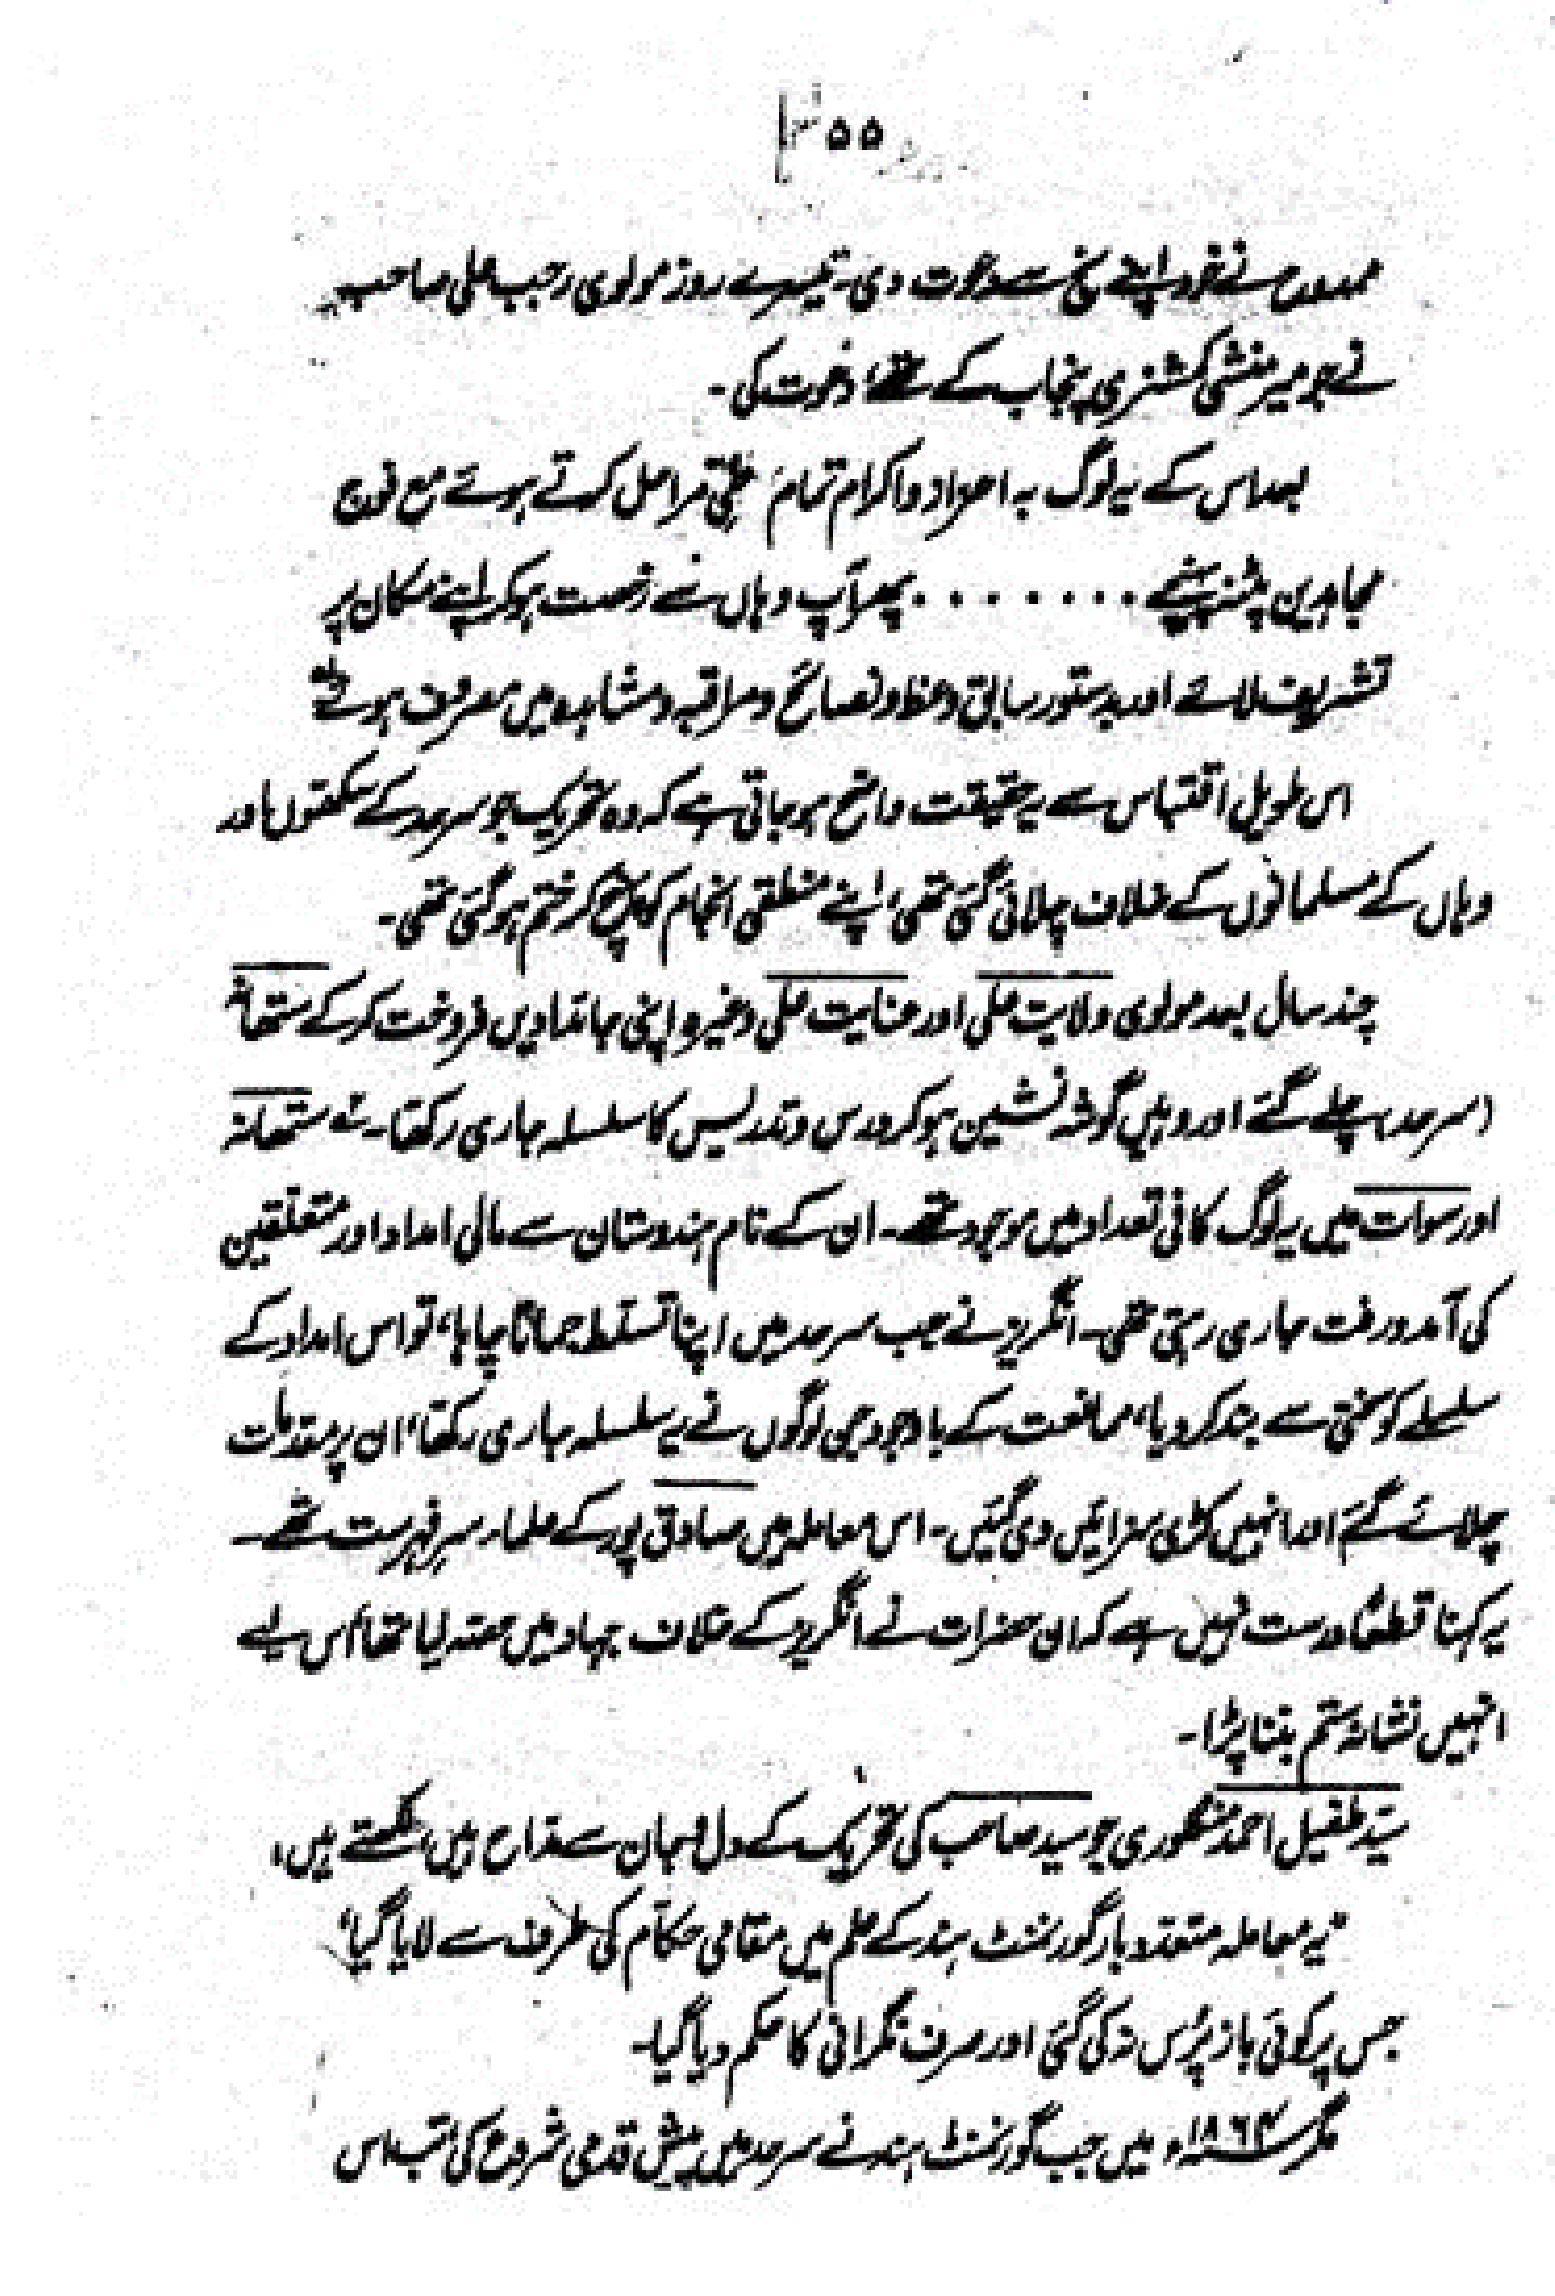 ۳۵۵
ممدوح نے خود اپنے پنج سے دعوت دی۔ تیسرے روز مولوی رجب علی صاحب
نے جو میر منشی کمشنری پنجاب کے تھے دعوت کی۔
بعد اس کے یہ لوگ بہ اعزاز و اکرام تمام طے مراحل کرتے ہوئے مع فوج
مجاہدین پٹنہ پہنچے ........ پھر آپ وہاں سے رخصت ہوکر اپنے مکان پر
تشریف لائے اور بدستور سابق وعظ و نصائح و مراقبہ و مشاہدہ میں مصروف ہوئے
اس طویل اقتباس سے یہ حقیقت واضح ہوجاتی ہے کہ وہ تحریک جو سرحد کے سکھوں اور
وہاں کے مسلمانوں کے خلاف چلائی گئی تھی، اپنے منطقی انجام کو پہنچ کر ختم ہوگئی تھی۔
چند سال بعد مولوی ولایت علی اور عنایت علی وغیرہ اپنی جائدادیں فروخت کرکے ستھانہ
(سرحد) چلے گئے اور وہیں گوشہ نشین ہوکر درس و تدریس کا سلسلہ جاری رکھا۔ ستھانہ
اور سوات میں یہ لوگ کافی تعداد میں موجود تھے۔ ان کے نام ہندوستان سے مالی امداد اور متعلقین
کی آمد و رفت جاری رہتی تھی۔ انگریز نے جب سرحد میں اپنا تسلط جمانا چاہا، تو اس امداد کے
سلسلے کو سختی سے بند کر دیا، ممانعت کے باوجود جن لوگوں نے یہ سلسلہ جاری رکھا، ان پر مقدمات
چلائے گئے اور انہیں کڑی سزائیں دی گئیں۔ اس معاملہ میں صادق پور کے علماء سرفہرست تھے۔
یہ کہنا قطعًا درست نہیں ہے کہ ان حضرات نے انگریز کے خلاف جہاد میں حصہ لیا تھا اس لیے
انہیں نشانۂ ستم بننا پڑا۔
سید طفیل احمد منگلوری جو سید صاحب کی تحریک کے دل و جان سے مداح ہیں، لکھتے ہیں،
"یہ معاملہ متعدد بار گورنمنٹ ہند کے علم میں مقامی حکام کی طرف سے لایا گیا،
جس پر کوئی باز پرس نہ کی گئی اور صرف نگرانی کا حکم دیا گیا۔
مگر ۱۸۶۴ء میں جب گورنمنٹ ہند نے سرحد میں پیش قدمی شروع کی تب اس